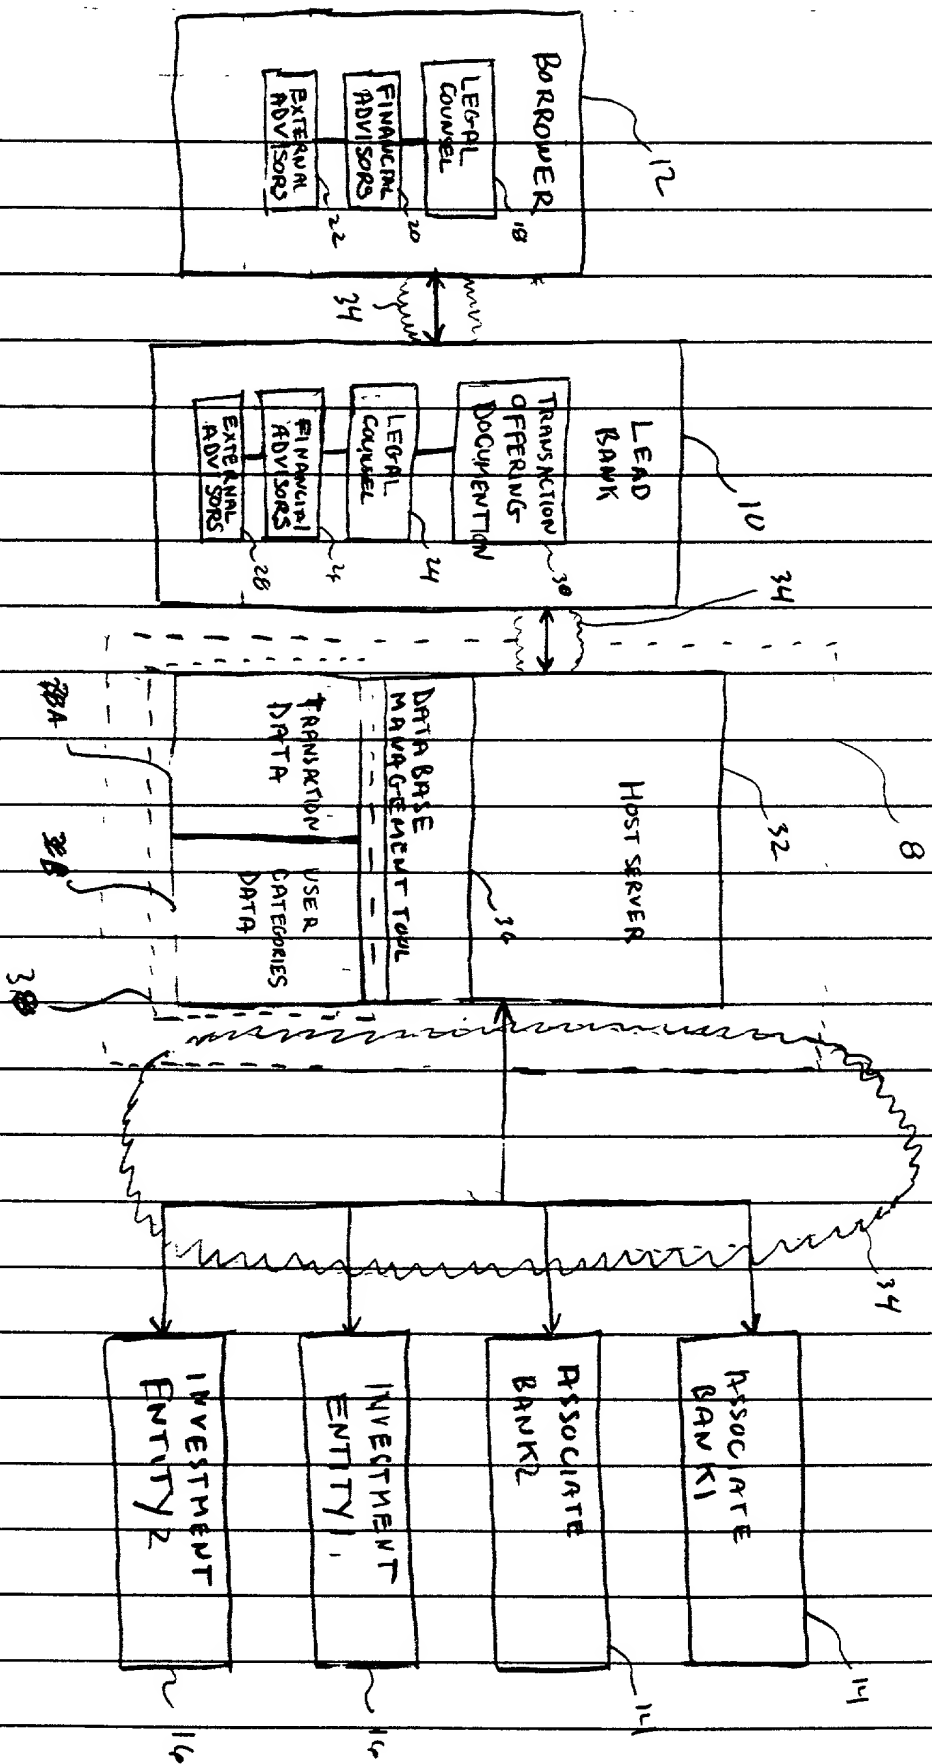 BORROWER
12
LEGAL
COUNSEL
18
FINANCIAL
ADVISORS
20
EXTERNAL
ADVISORS
22
34
LEAD
BANK
10
TRANSACTION
OFFERING
DOCUMENTION
30
LEGAL
COUNSEL
24
FINANCIAL
ADVISORS
26
EXTERNAL
ADVISORS
28
34
8
HOST SERVER
32
DATABASE
MANAGEMENT TOOL
36
TRANSACTION
DATA
USER
CATEGORIES
DATA
34
ASSOCIATE
BANK1
14
ASSOCIATE
BANK2
14
INVESTMENT
ENTITY1
16
INVESTMENT
ENTITY2
16